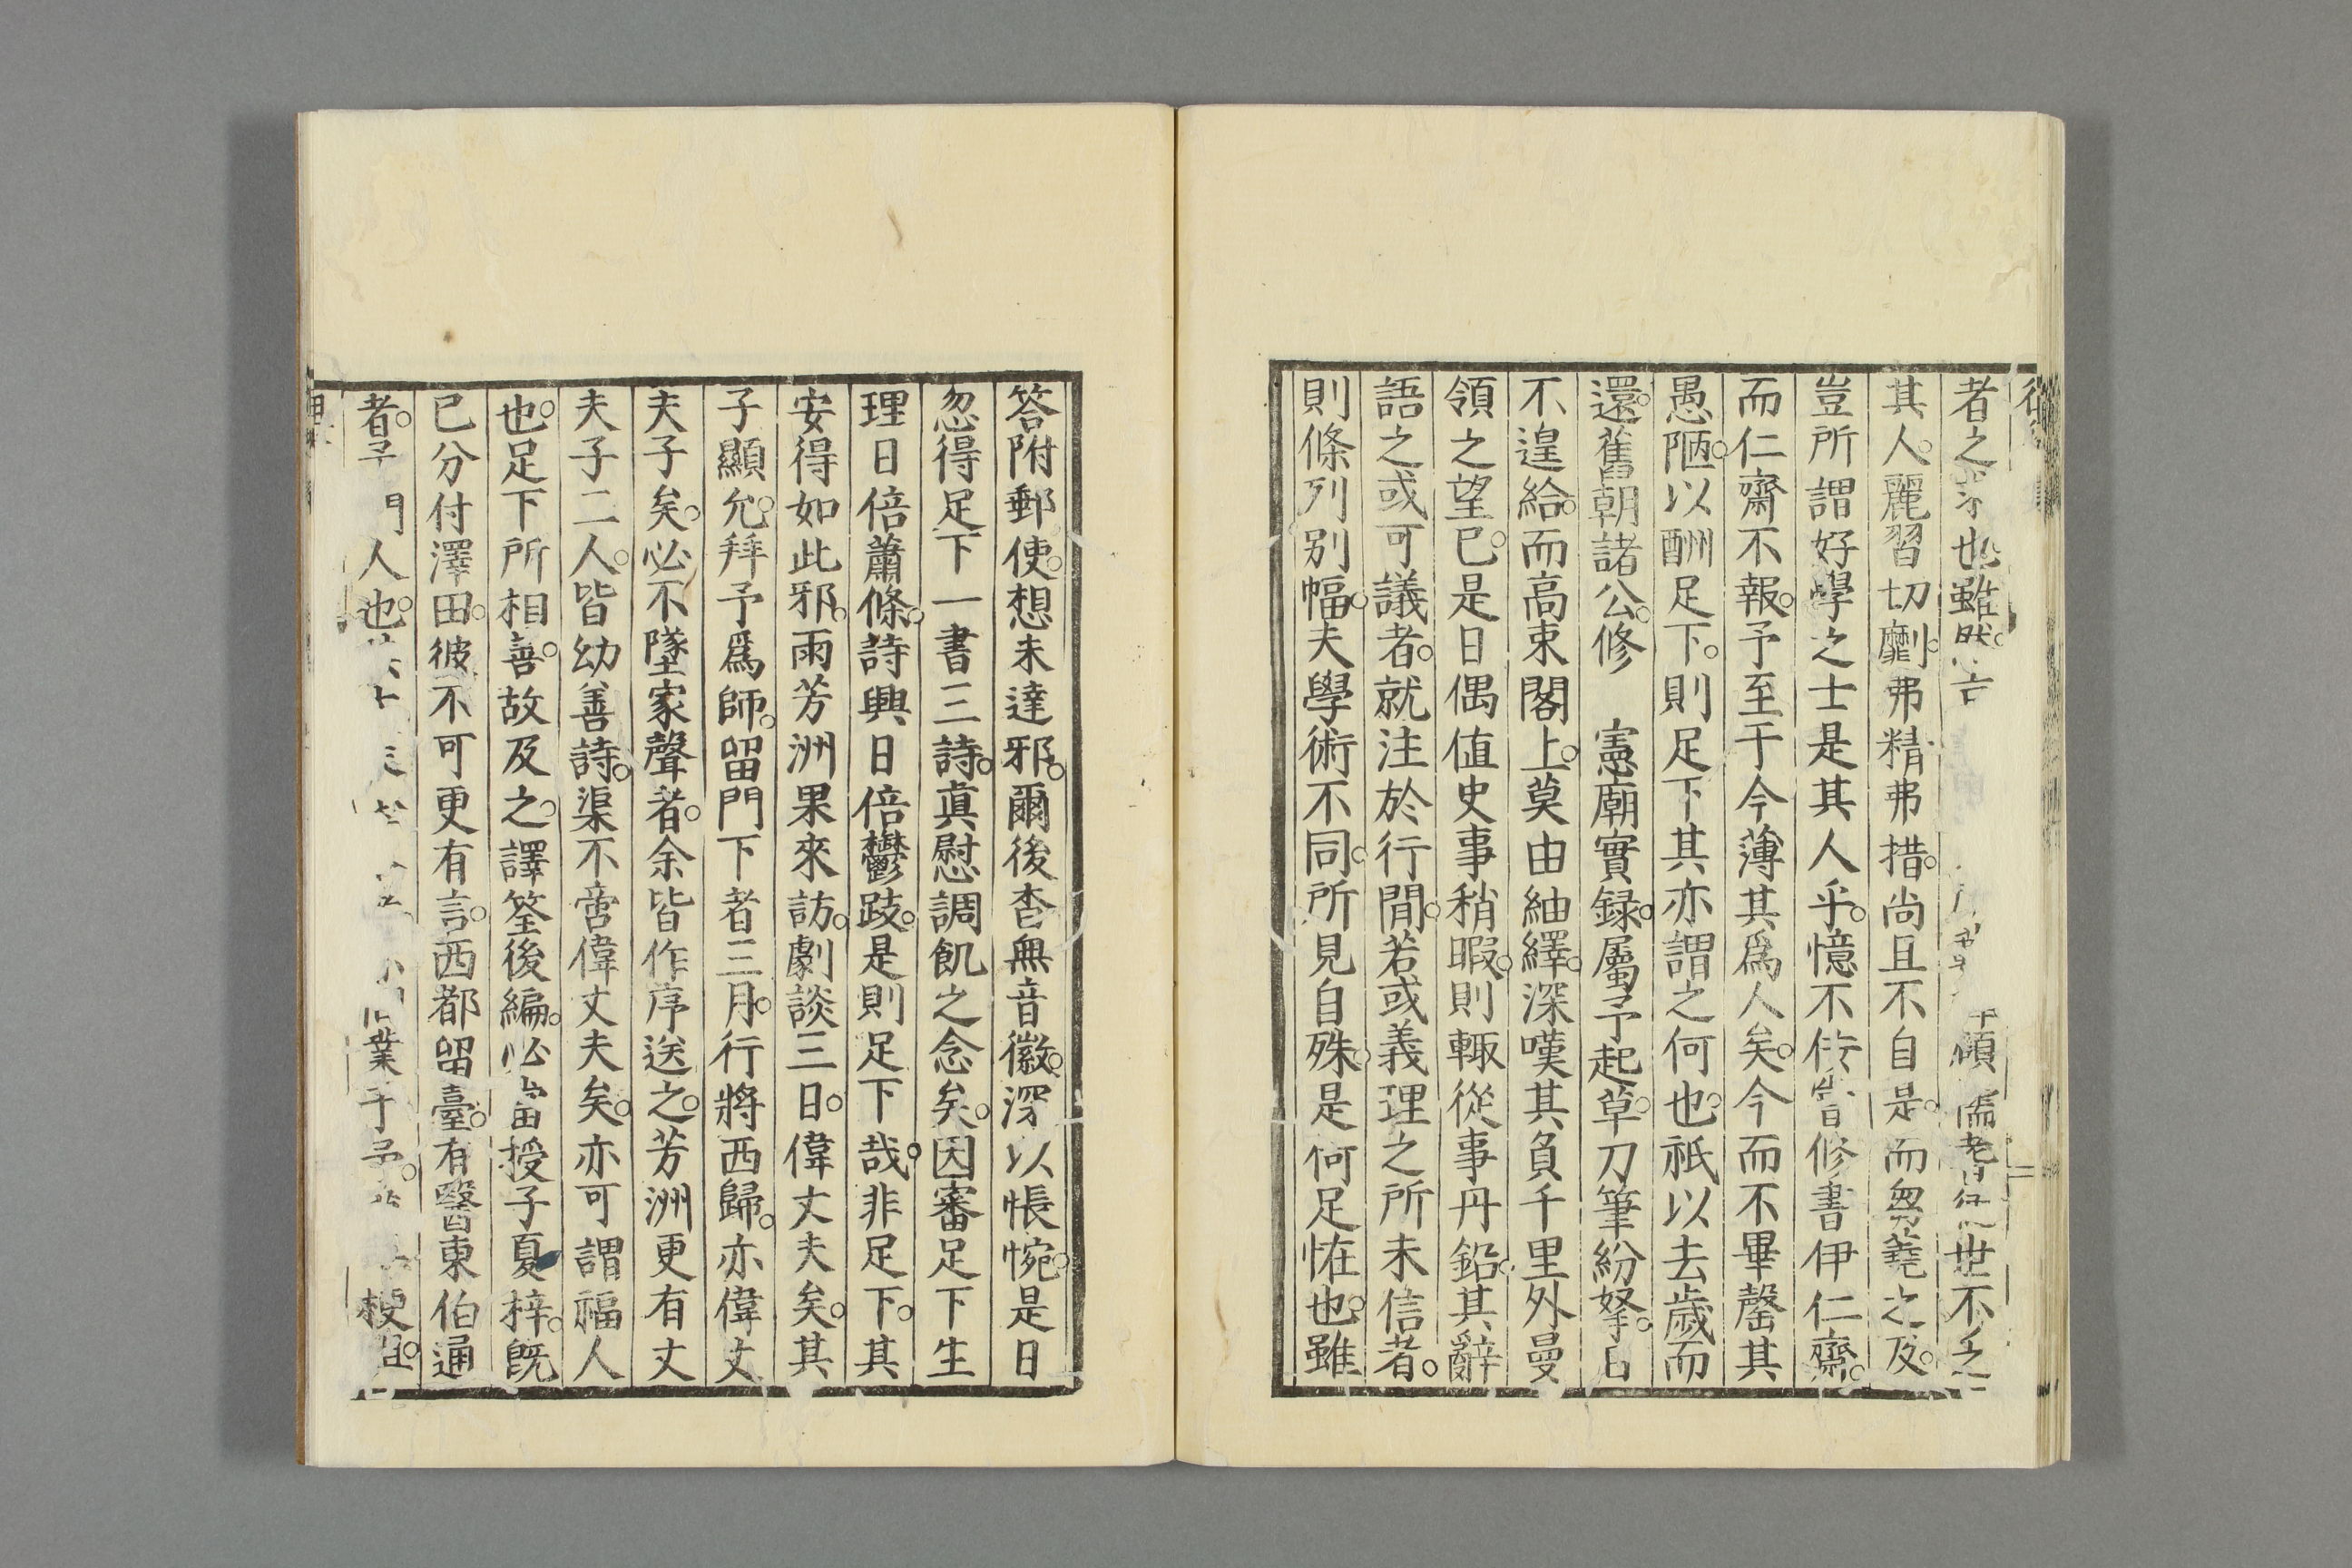 者之 也雖然。言 碩儒 世不乏
其人。麗習切劘。弗精弗措。尚且不自是。而芻蕘之及。
豈所謂好學之士是其人乎。憶不佞嘗修書伊仁齋。
而仁齋不報。予至于今薄其爲人矣。今而不畢罄其
愚陋。以酬足下。則足下其亦謂之何也。祇以去歲而
還。舊朝諸公。修 憲廟實録。屬予起草。刀筆紛拏。日
不遑給。而高束閣上。莫由紬繹。深嘆其負千里外曼
領之望已。是日偶値史事稍暇。則輙從事丹鉛。其辭
語之或可議者。就注於行間。若或義理之所未信者。
則條列別幅。夫學術不同。所見自殊。是何足恠也。雖
答附郵使。想未達邪。爾後杳無音徽。深以悵惋。是日
忽得足下一書三詩。眞慰調飢之念矣。因審足下生
理日倍蕭條。詩興日倍鬱跂。是則足下哉。非足下。其
安得如此邪。雨芳洲果來訪。劇談三日。偉丈夫矣。其
子顯允。拜予爲師。留門下者三月。行將西歸。亦偉丈
夫子矣。必不墜家聲者。余皆作序送之。芳洲更有丈
夫子二人。皆幼善詩。渠不啻偉丈夫矣。亦可謂福人
也。足下所相善。故及之。譯筌後編。必當授子夏梓。旣
已分付澤田。彼不可更有言。西都留臺。有醫東伯通
者。予門人也。 業于予。 梗